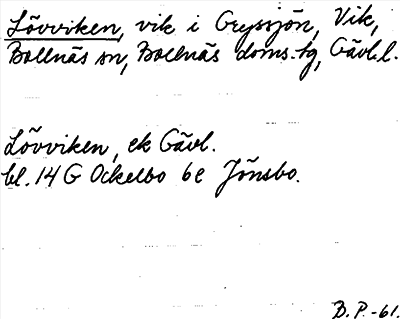 Lövviken, vik i Gryssjön, Vik,
Bollnäs sn, Bollnäs doms.tg, Gävl.l.
Lövviken, ek Gävl.
bl. 14 G Ockelbo 6e Jönsbo.
B.P.-61.